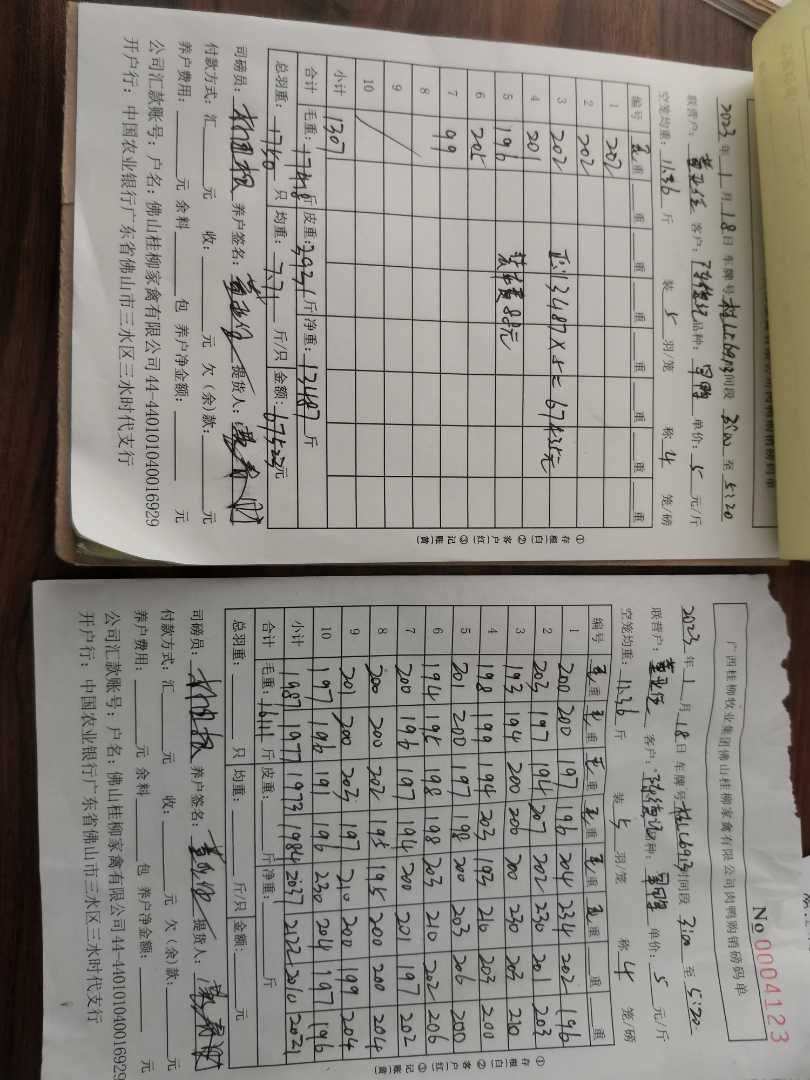 2023年1月18日 车牌号 时间段 3:00 至 5:20
联营户: 客户: 品种: 单价: 5 元/斤
空笼均重: 11.36 斤 装 5 羽/笼 称 4 笼/磅
编号 毛重 重 重 重 重 重 重 重
1 202
2 202
3 202 13487×5=67435元
4 201
5 196 装车费88元
6 205
7 99
8
9
10
小计 1307
合计 毛重: 17418 斤 皮重: 3931 斤 净重: 13487 斤
总羽重: 1750 只 均重: 7.71 斤/只 金额: 67523 元
司磅员: 养户签名: 提货人:
付款方式: 汇 元 收: 元 欠(余)款: 元
养户费用: 元 余料 包 养户净金额: 元
公司汇款账号: 户名: 佛山桂柳家禽有限公司44-440101040016929
开户行: 中国农业银行广东省佛山市三水区三水时代支行
①存根(白) ②客户(红) ③记账(黄)
广西桂柳牧业集团佛山桂柳家禽有限公司肉鸭购销磅码单
№0004123
2023年1月18日 车牌号 时间段 3:00 至 5:20
联营户: 客户: 品种: 单价: 5 元/斤
空笼均重: 11.36 斤 装 5 羽/笼 称 4 笼/磅
编号 毛重 毛重 毛重 毛重 毛重 毛重 重 重
1 200 200 197 196 204 234 202 196
2 203 197 194 207 202 230 201 203
3 193 194 200 200 200 230 203 210
4 198 199 194 203 193 210 203 200
5 201 200 197 198 200 203 206 200
6 194 195 198 198 203 210 202 206
7 200 196 197 194 200 201 197 202
8 200 200 202 195 195 200 200 204
9 201 200 203 197 210 200 199 204
10 197 196 191 196 230 204 197 196
小计 1987 1977 1973 1984 2037 2122 2010 2021
合计 毛重: 16111 斤 皮重: 斤 净重: 斤
总羽重: 只 均重: 斤/只 金额: 元
司磅员: 养户签名: 提货人:
付款方式: 汇 元 收: 元 欠(余)款: 元
养户费用: 元 余料 包 养户净金额: 元
公司汇款账号: 户名: 佛山桂柳家禽有限公司44-440101040016929
开户行: 中国农业银行广东省佛山市三水区三水时代支行
①存根(白) ②客户(红) ③记账(黄)